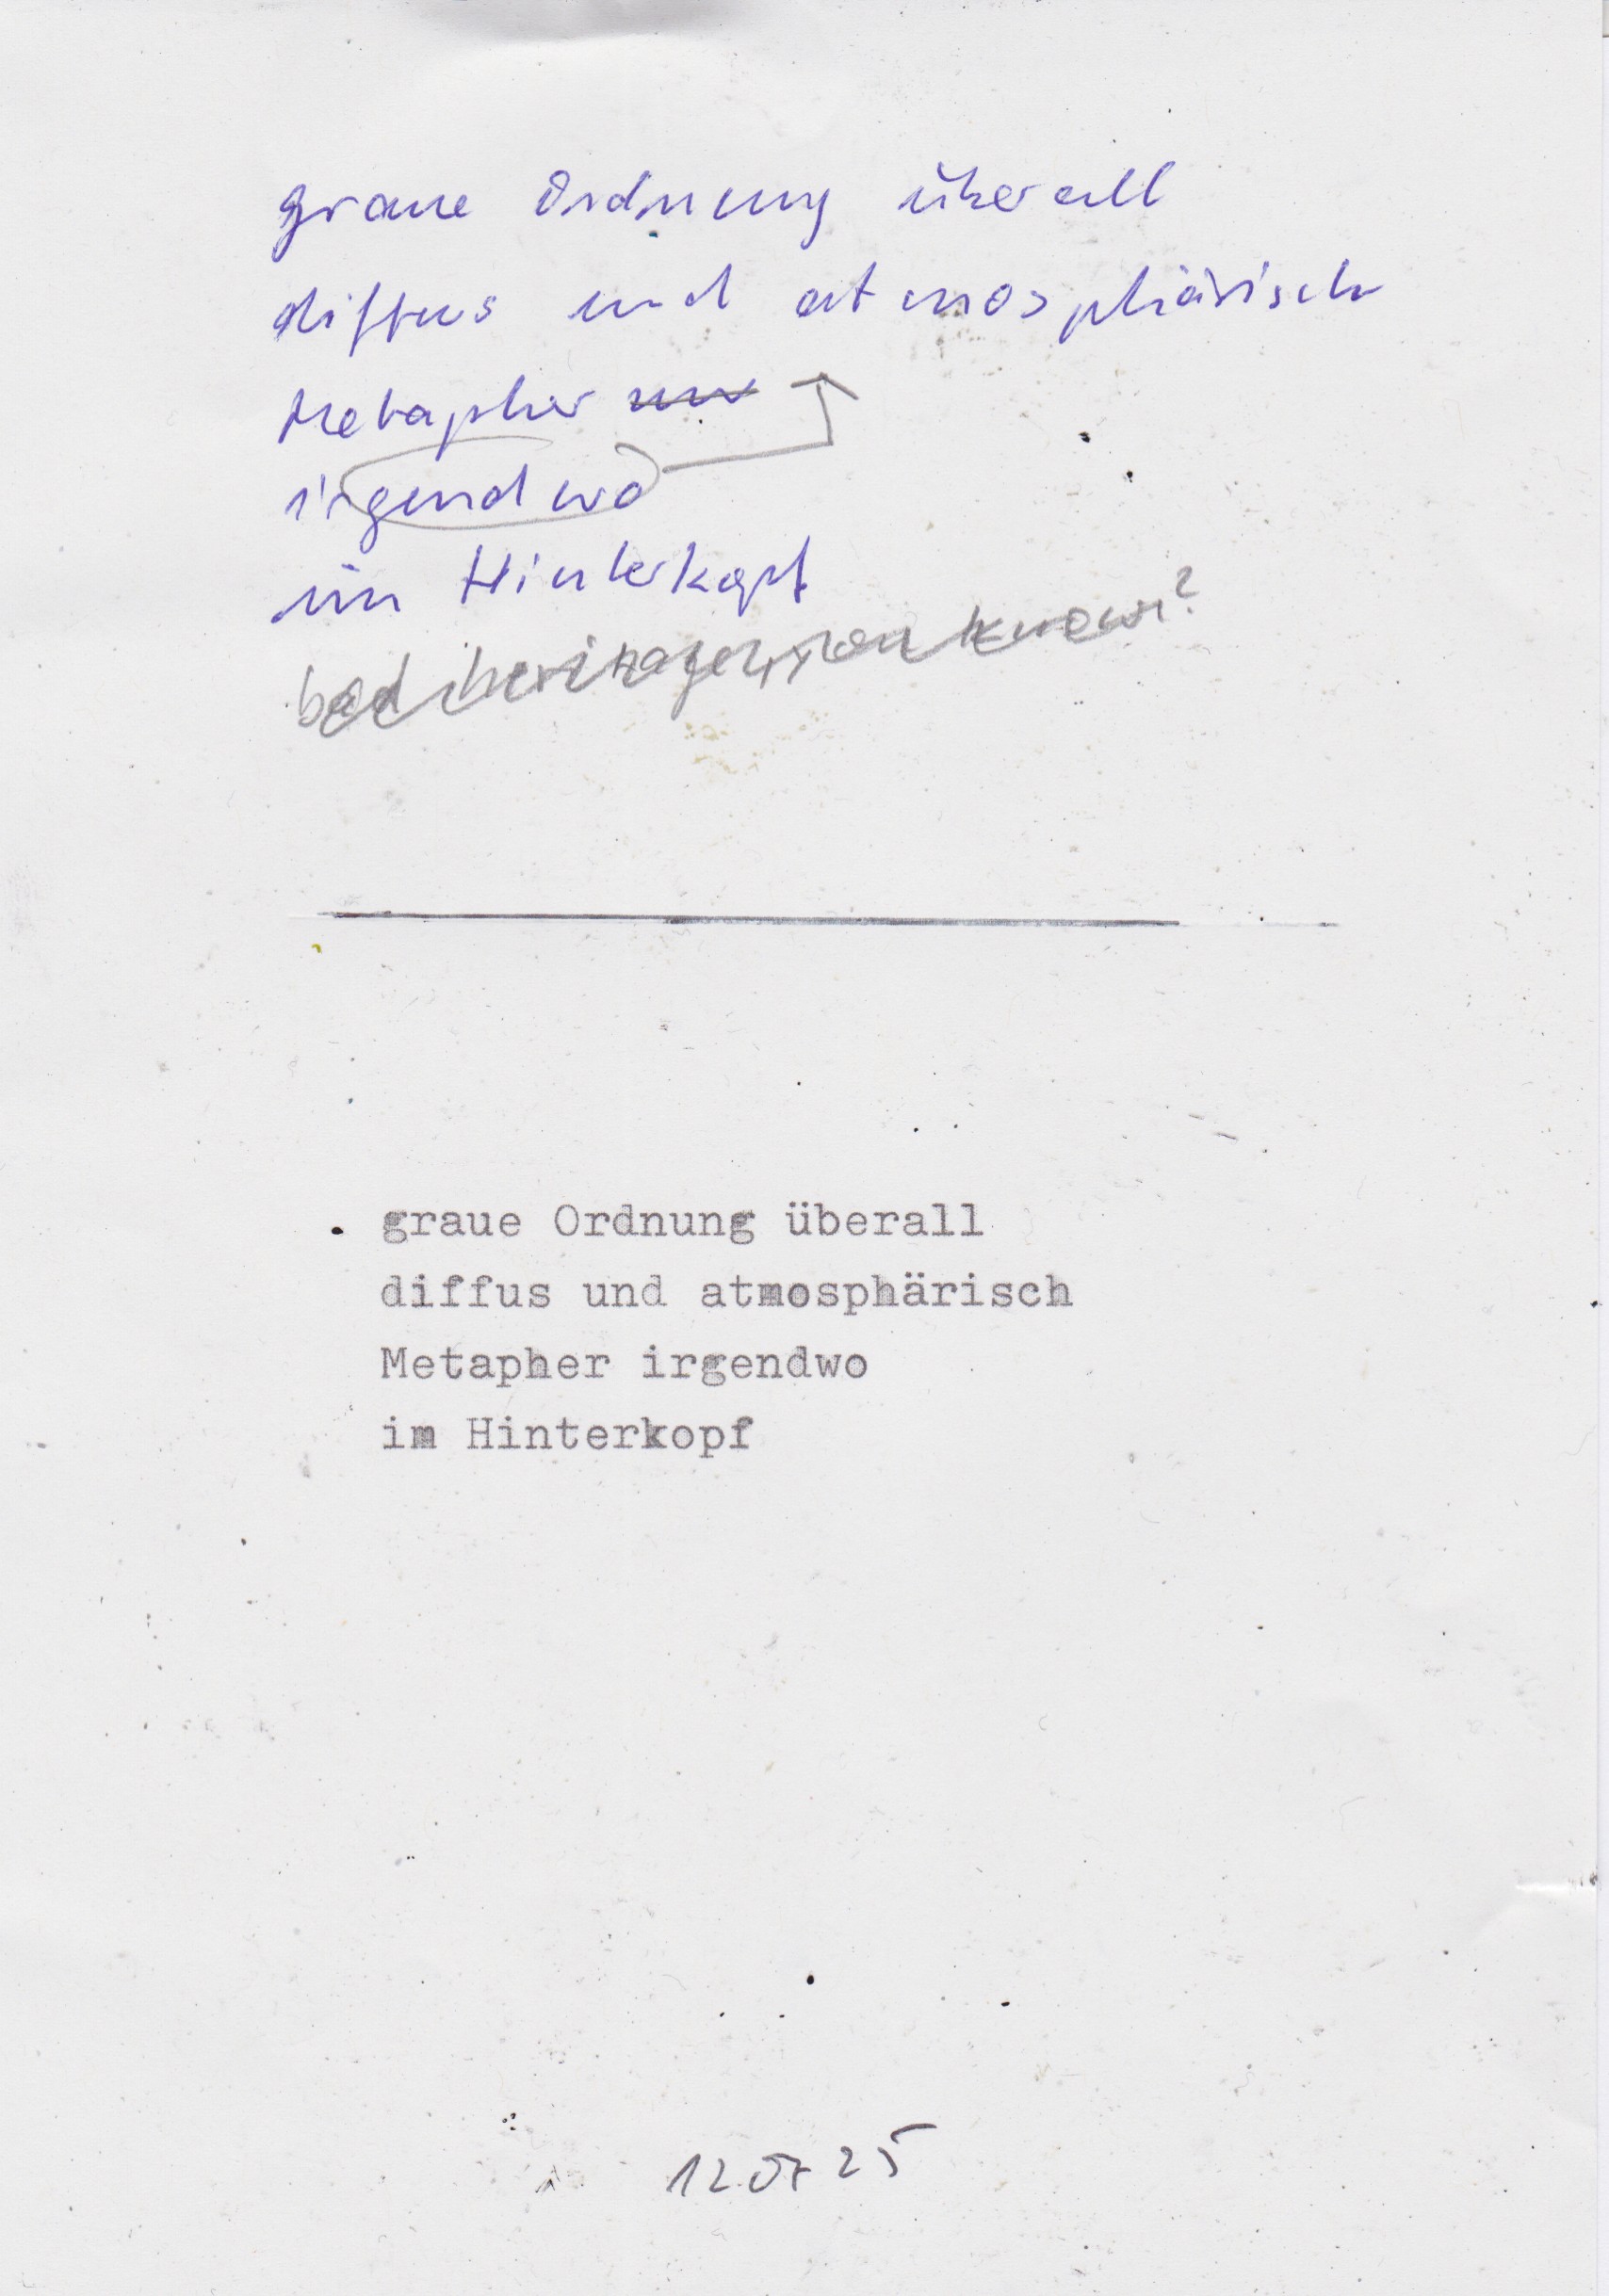 graue Ordnung überall
diffus und atmosphärisch
Metapher
irgendwo
im Hinterkopf
bad heritage, you know?
graue Ordnung überall
diffus und atmosphärisch
Metapher irgendwo
im Hinterkopf
12.07.25